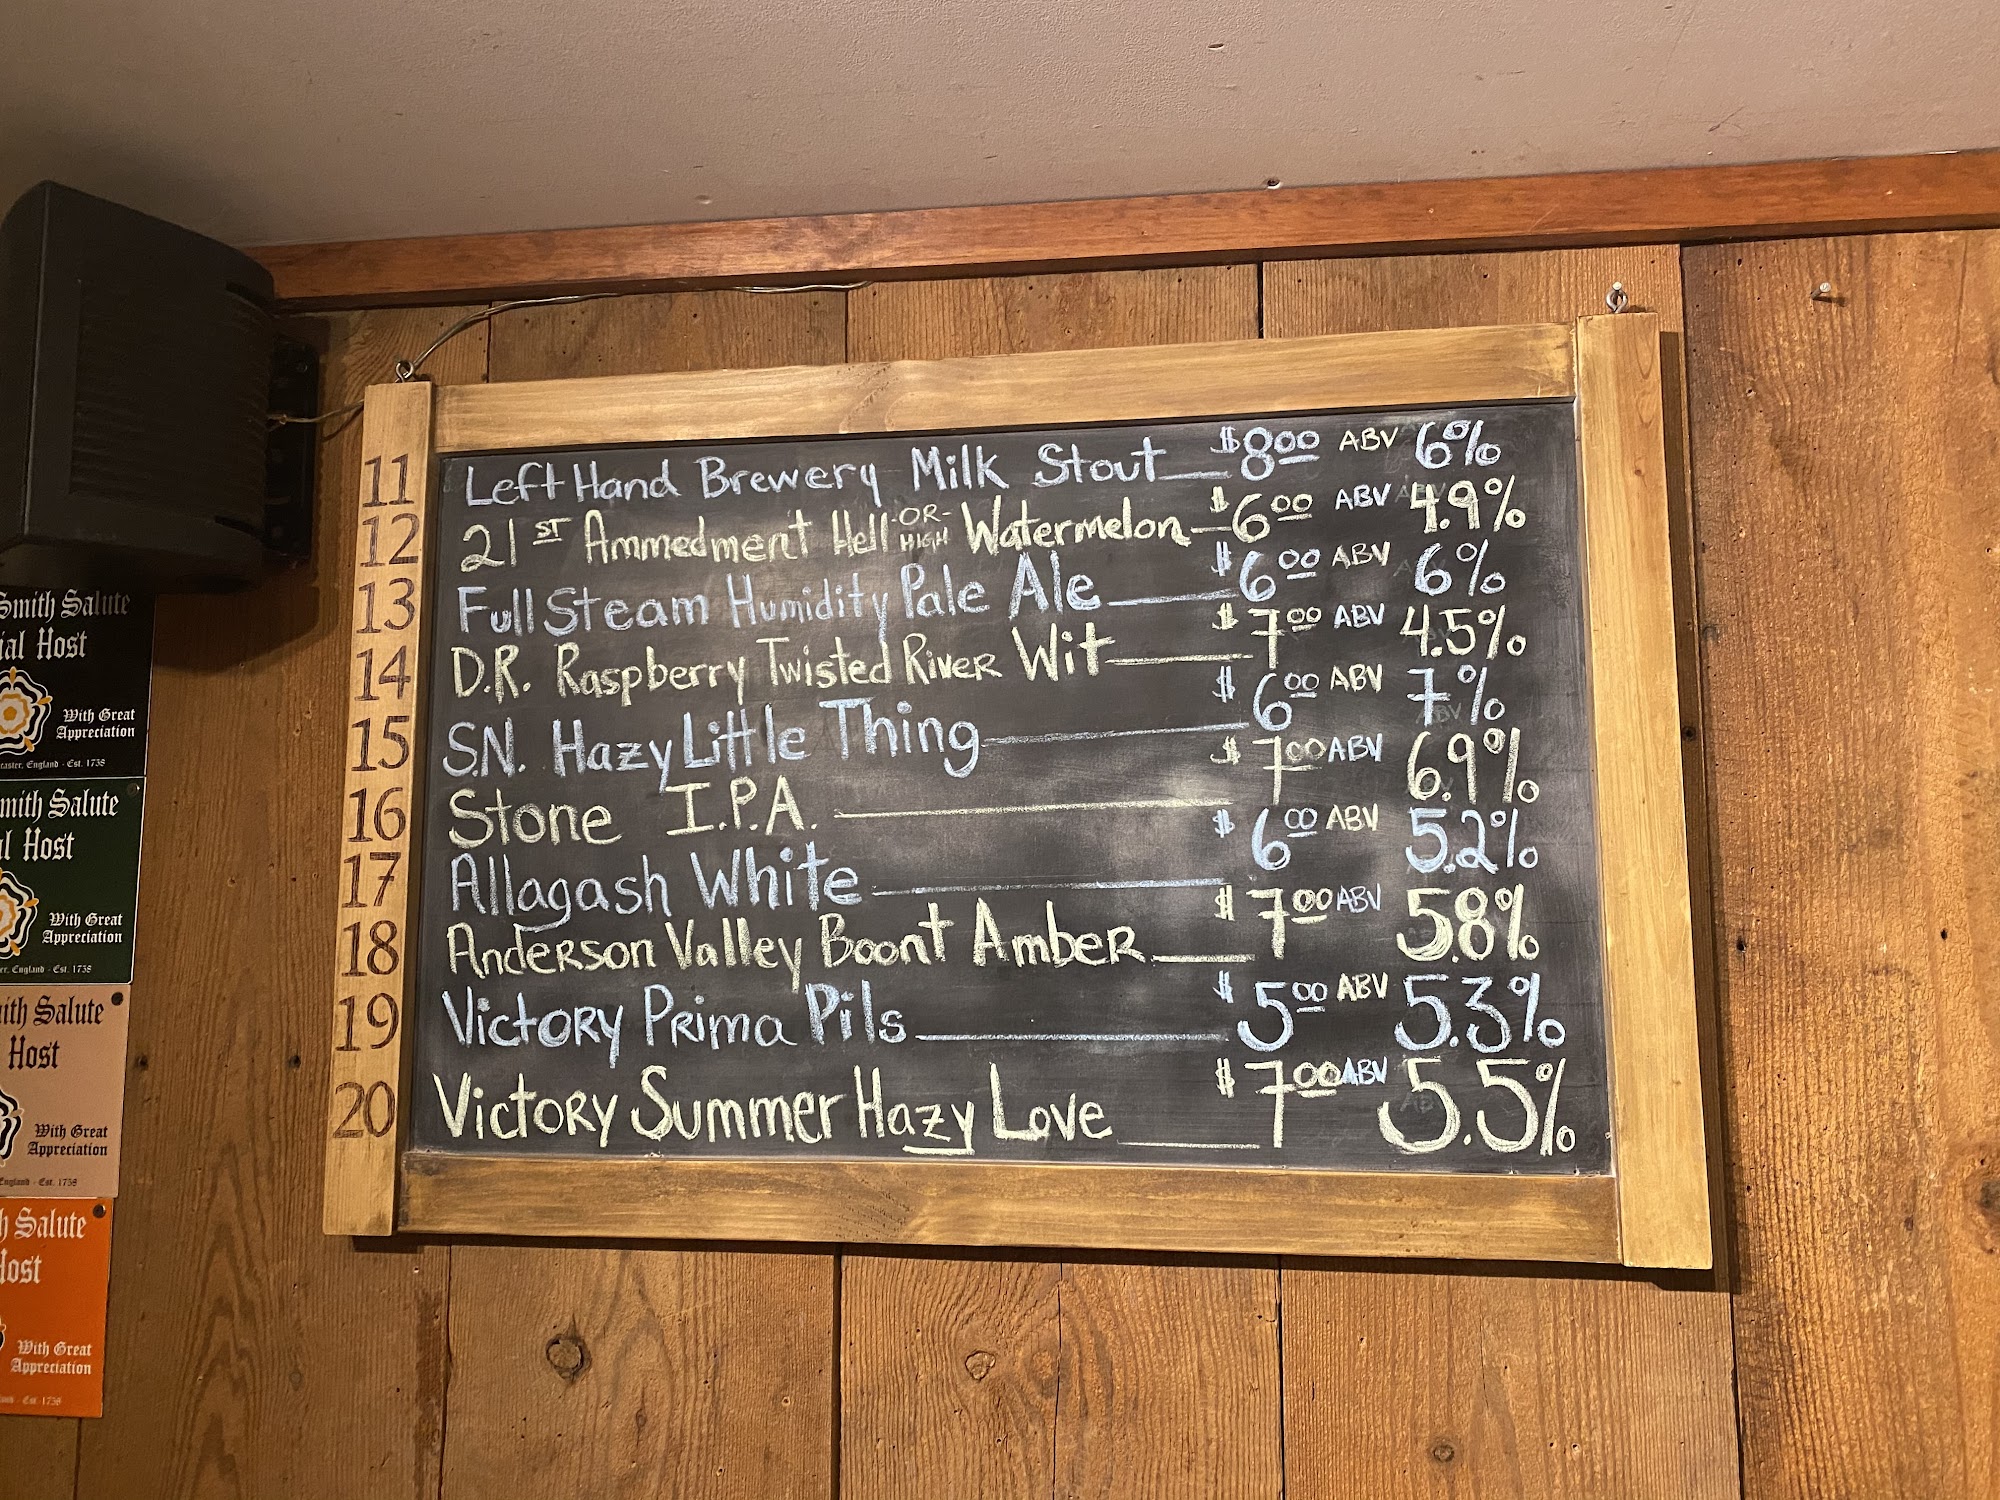 11 Left Hand Brewery Milk Stout $8.00 ABV 6%
12 21ST Ammedment Hell -OR- HIGH Watermelon $6.00 ABV 4.9%
13 Full Steam Humidity Pale Ale $6.00 ABV 6%
14 D.R. Raspberry Twisted River Wit $7.00 ABV 4.5%
15 S.N. Hazy Little Thing $6.00 ABV 7%
16 Stone I.P.A. $7.00 ABV 6.9%
17 Allagash White $6.00 ABV 5.2%
18 Anderson Valley Boont Amber $7.00 ABV 5.8%
19 Victory Prima Pils $5.00 ABV 5.3%
20 Victory Summer Hazy Love $7.00 ABV 5.5%
Smith Salute
Host
With Great
Appreciation
England - Est. 1758
Smith Salute
Host
With Great
Appreciation
England - Est. 1758
Salute
Host
With Great
Appreciation
England - Est. 1758
Salute
Host
With Great
Appreciation
Est. 1758